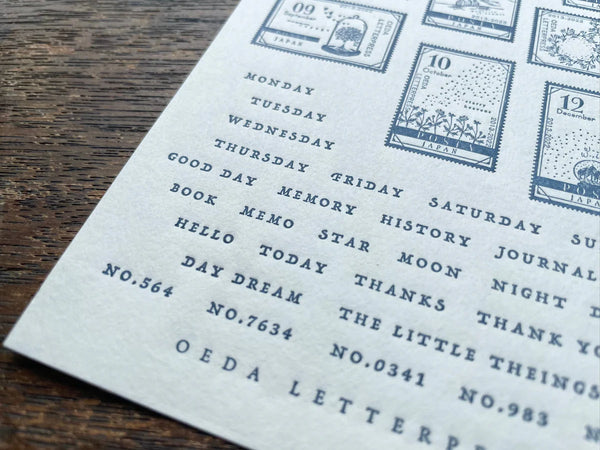 09
September
OEDA LETTERPRESS
JAPAN
POSTA
10
October
OEDA
POSTA
JAPAN
OEDA
LETTERPRESS
12
December
MONDAY
TUESDAY
WEDNESDAY
THURSDAY FRIDAY SATURDAY SU
GOOD DAY MEMORY HISTORY JOURNAL
BOOK MEMO STAR MOON NIGHT D
HELLO TODAY THANKS THANK YO
DAY DREAM THE LITTLE THEINGS
NO.564 NO.7634 NO.0341 NO.983 N
OEDA LETTERP